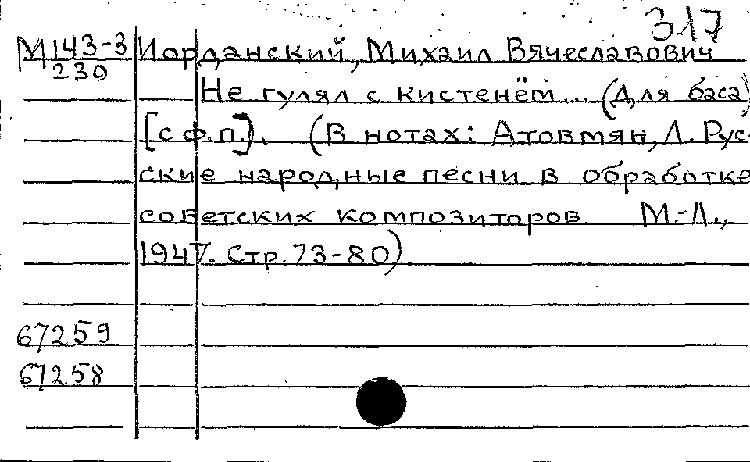 317
М143-3 Иорданский, Михаил Вячеславович
239
Не гулял с кистенём... (Для баса)
[с ф.п]. (В нотах: Атовмян, Л. Рус-
ские народные песни в обработке
советских композиторов М.-Л.,
1947. Стр. 73-80)
67259
67258